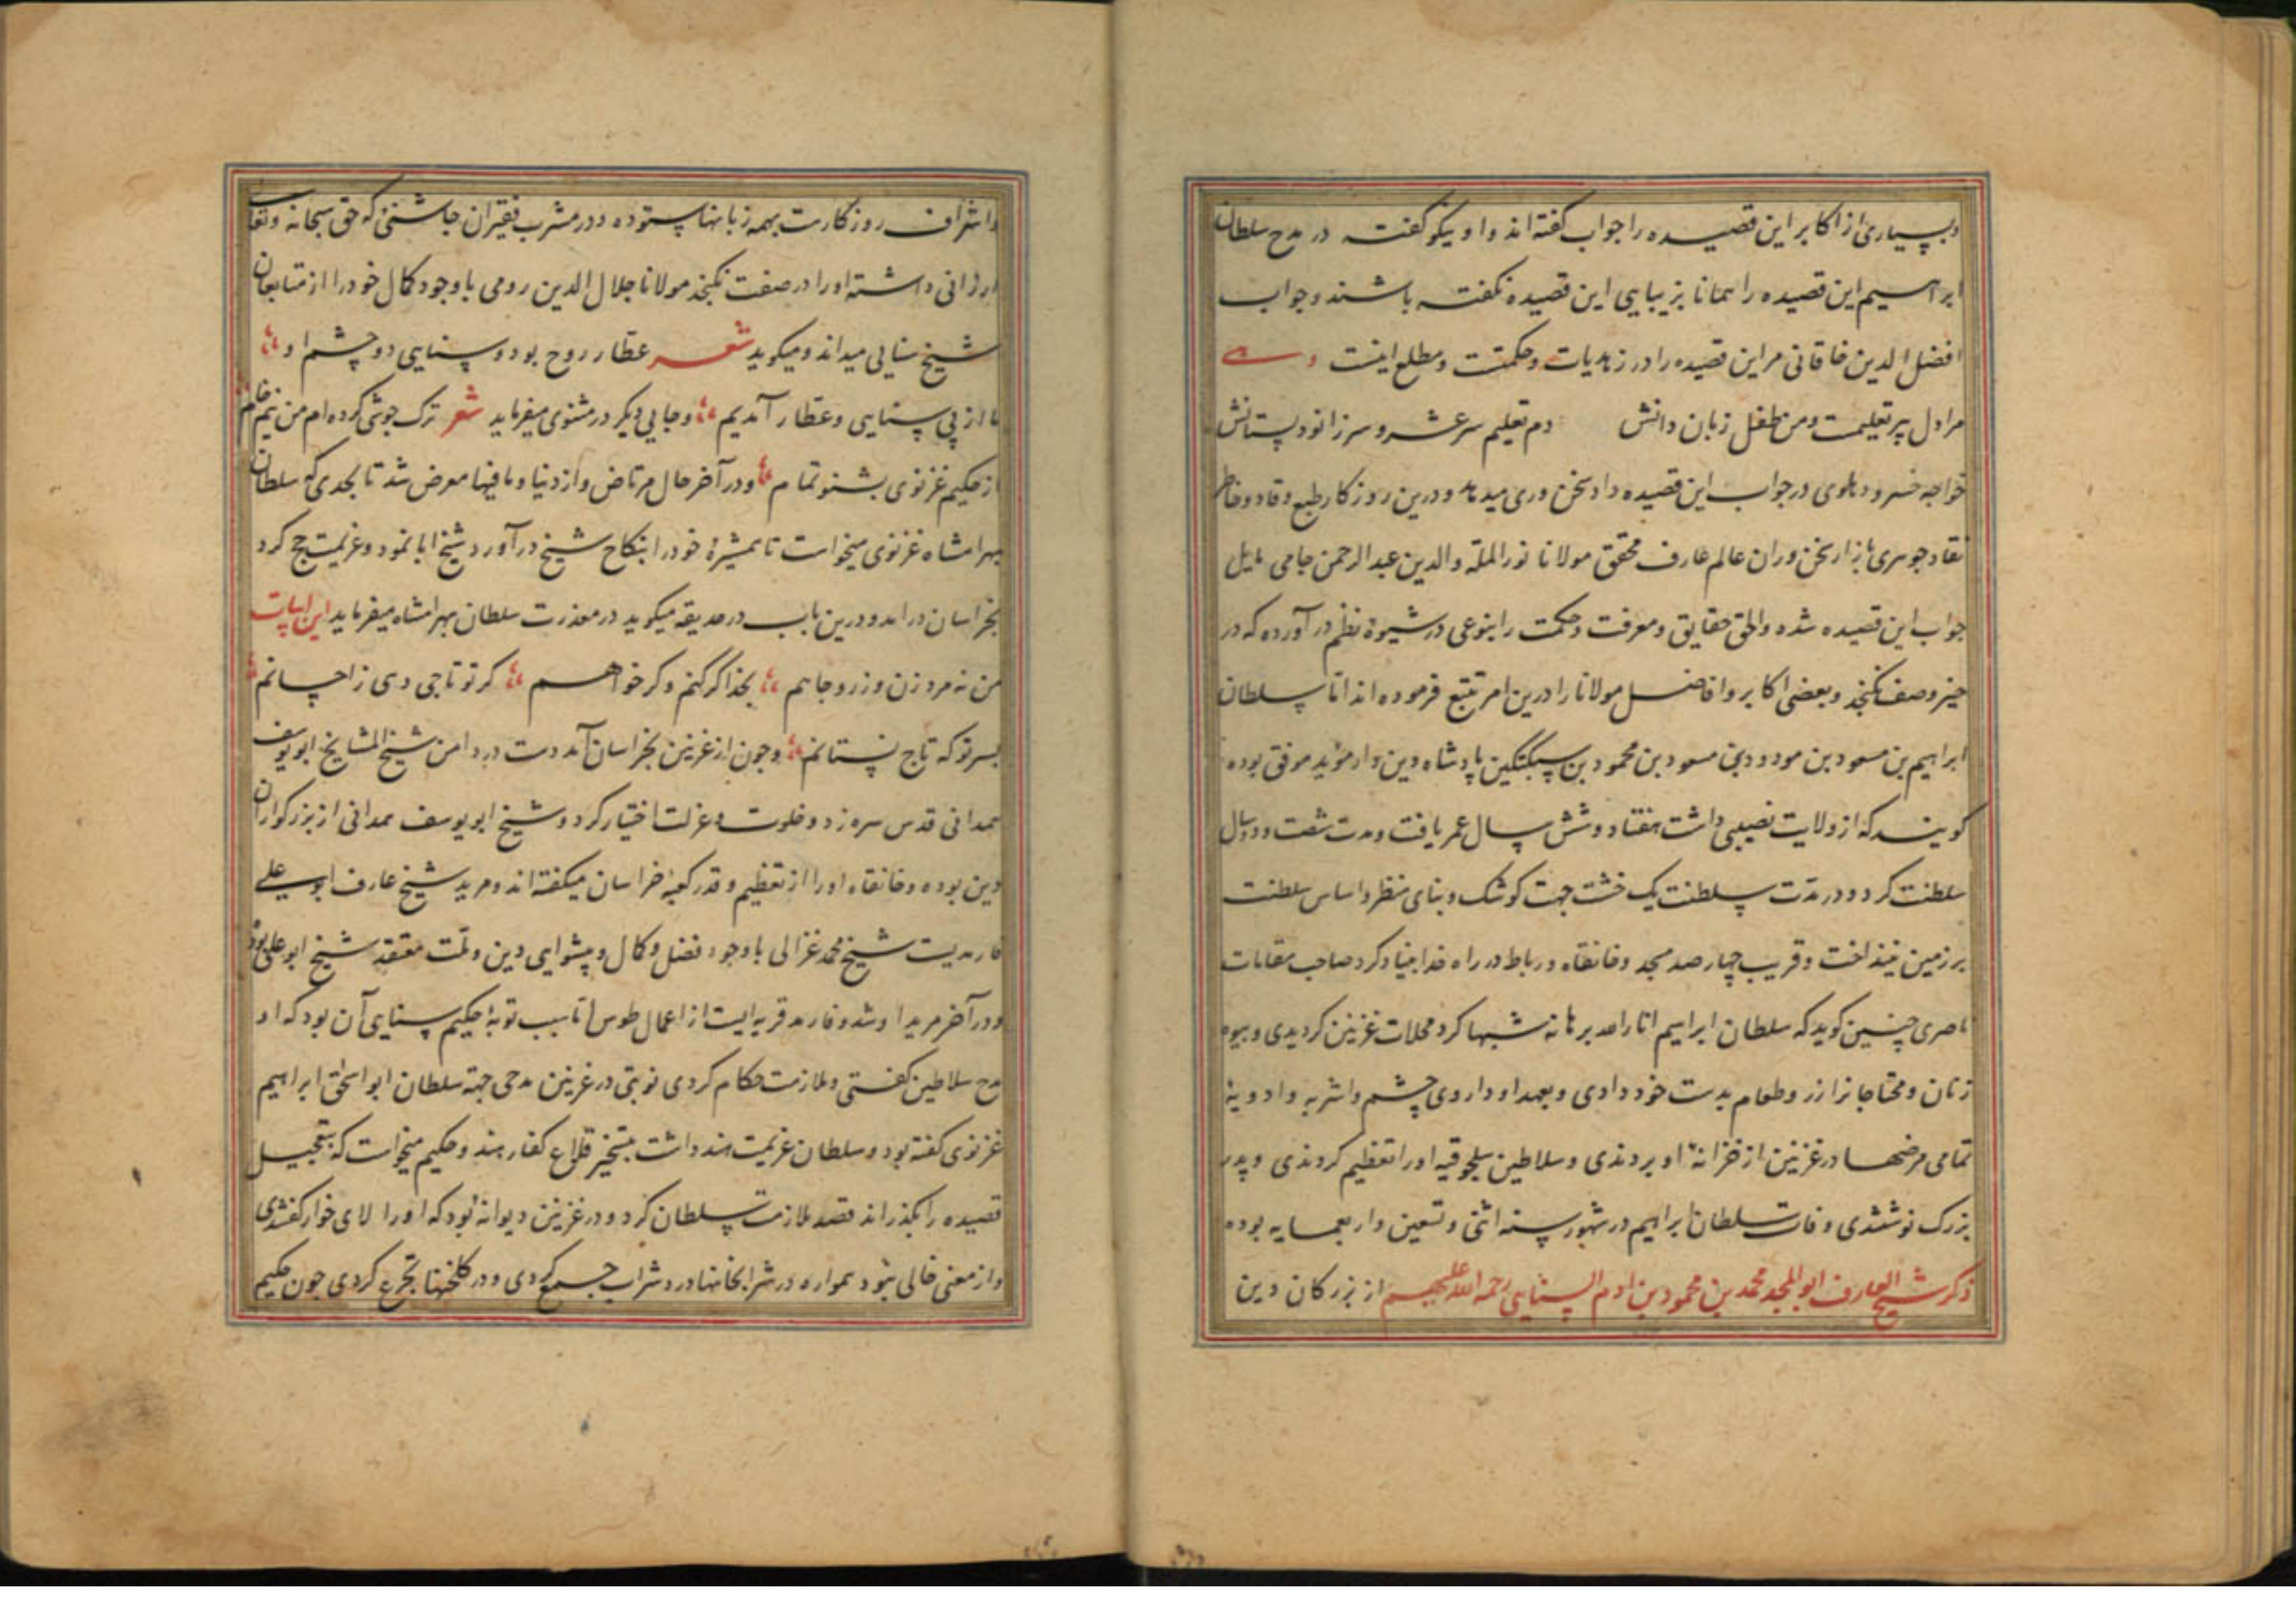 وبسیاری از اکابر این قصیده را جواب گفته اند و او نیکو گفته در مدح سلطان
ابراهیم این قصیده را همانا بزیبایی این قصیده نگفته باشند و جواب
افضل الدین خاقانی مر این قصیده را در زهدیات و حکمتست و مطلع اینست
مرا دل پیر تعلیمست و من طفل زبان دانش دم تعلیم سر عشر و سر زانو دبستانش
خواجه خسرو دهلوی در جواب این قصیده داد سخن وری میدهد و درین روزکار طبع وقاد و خاطر
نقاد جوهری بازار سخن وران عالم عارف محقق مولانا نور الملة والدین عبد الرحمن جامی مایل
جواب این قصیده شده والحق حقایق و معرفت و حکمت را بنوعی در شیوهٔ نظم در آورده که در
حیز وصف نکنجد و بعضی اکابر و افاضل مولانا را درین امر تتبع فرموده اند اما سلطان
ابراهیم بن مسعود بن مودود بن مسعود بن محمود بن سبکتکین پادشاه دین دار مؤید موفق بوده
کویند که از ولایت نصیبی داشت هفتاد و شش سال عمر یافت و مدت شصت و دو سال
سلطنت کرد و در مدت سلطنت یک خشت جهت کوشک و بنای منظر و اساس سلطنت
بر زمین نینداخت و قریب چهار صد مسجد و خانقاه و رباط در راه خدا بنیاد کرد صاحب مقامات
ناصری چنین کوید که سلطان ابراهیم انار الله برهانه شبها کرد محلات غزنین کردیدی و بیوه
زنان و محتاجانرا زر و طعام بدست خود دادی و بعهد او داروی چشم و اشربه و ادویهٔ
تمامی مرضها در غزنین از خزانهٔ او بردندی و سلاطین سلجوقیه او را تعظیم کردندی و پدر
بزرک نوشتندی وفات سلطان ابراهیم در شهور سنه اثنی و تسعین و اربعمایه بوده
ذکر شیخ العارف ابو المجد محمد بن محمود بن ادم السنایی رحمه الله علیهم از بزرکان دین
و اشراف روزکارست بهمه زبانها ستوده و در مشرب فقیران چاشنئ که حق سبحانه و تعالی
ارزانی داشته او را در صفت نکنجد مولانا جلال الدین رومی با وجود کمال خود را از متابعان
شیخ سنایی میداند و میکوید شعر عطار روح بود و سنایی دو چشم او
ما از پی سنایی و عطار آمدیم و جایی دیکر در مثنوی میفرماید شعر ترک جوشی کرده ام من نیم خام
از حکیم غزنوی بشنو تمام و در آخر حال مرتاض و از دنیا و مافیها معرض شد تا بحدی که سلطان
بهرامشاه غزنوی میخواست تا همشیرهٔ خود را بنکاح شیخ در آورد شیخ ابا نمود و عزیمت حج کرد
بخراسان در امد و درین باب در حدیقه میکوید در معذرت سلطان بهرامشاه میفرماید این ابیات
من نه مرد زن و زر و جاهم بخدا کر کنم و کر خواهم کر تو تاجی دهی ز احسانم
بسر تو که تاج نستانم و چون از غزنین بخراسان آمد دست در دامن شیخ المشایخ ابو یوسف
همدانی قدس سره زد و خلوت و عزلت اختیار کرد و شیخ ابو یوسف همدانی از بزرکواران
دین بوده و خانقاه او را از تعظیم و قدر کعبهٔ خراسان میکفته اند و مرید شیخ عارف ابو علی
فارمدیست شیخ محمد غزالی با وجود فضل و کمال و پیشوایی دین و ملت معتقد شیخ ابو علی بود
و در آخر مرید او شد و فارمد قریه ایست از اعمال طوس اما سبب توبهٔ حکیم سنایی آن بود که او
مدح سلاطین کفتی و ملازمت حکام کردی نوبتی در غزنین مدحی جهة سلطان ابو اسحق ابراهیم
غزنوی کفته بود و سلطان عزیمت هند داشت بتسخیر قلاع کفار هند و حکیم میخواست که بتعجیل
قصیده را بکذراند قصد ملازمت سلطان کرد و در غزنین دیوانهٔ بود که او را لای خوار کفتندی
و از معنی خالی نبود همواره در شرابخانها درد شراب جمع کردی و در کلخنها تجرع کردی چون حکیم